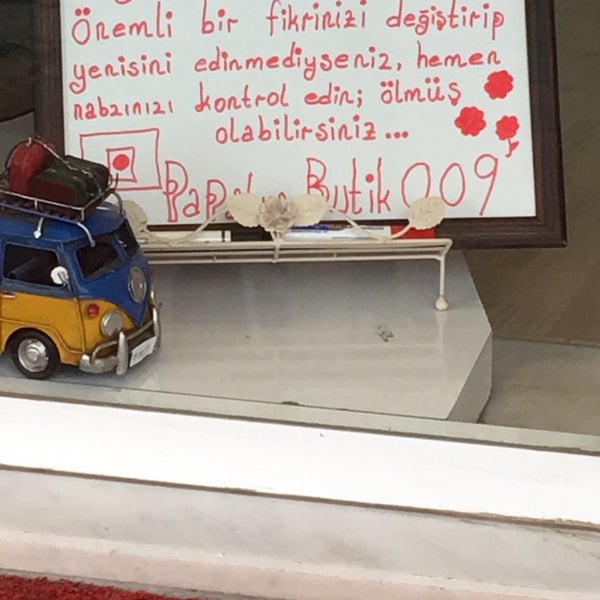 Önemli bir fikrinizi değiştirip
yenisini edinmediyseniz, hemen
nabzınızı kontrol edin; ölmüş
olabilirsiniz...
Butik 009